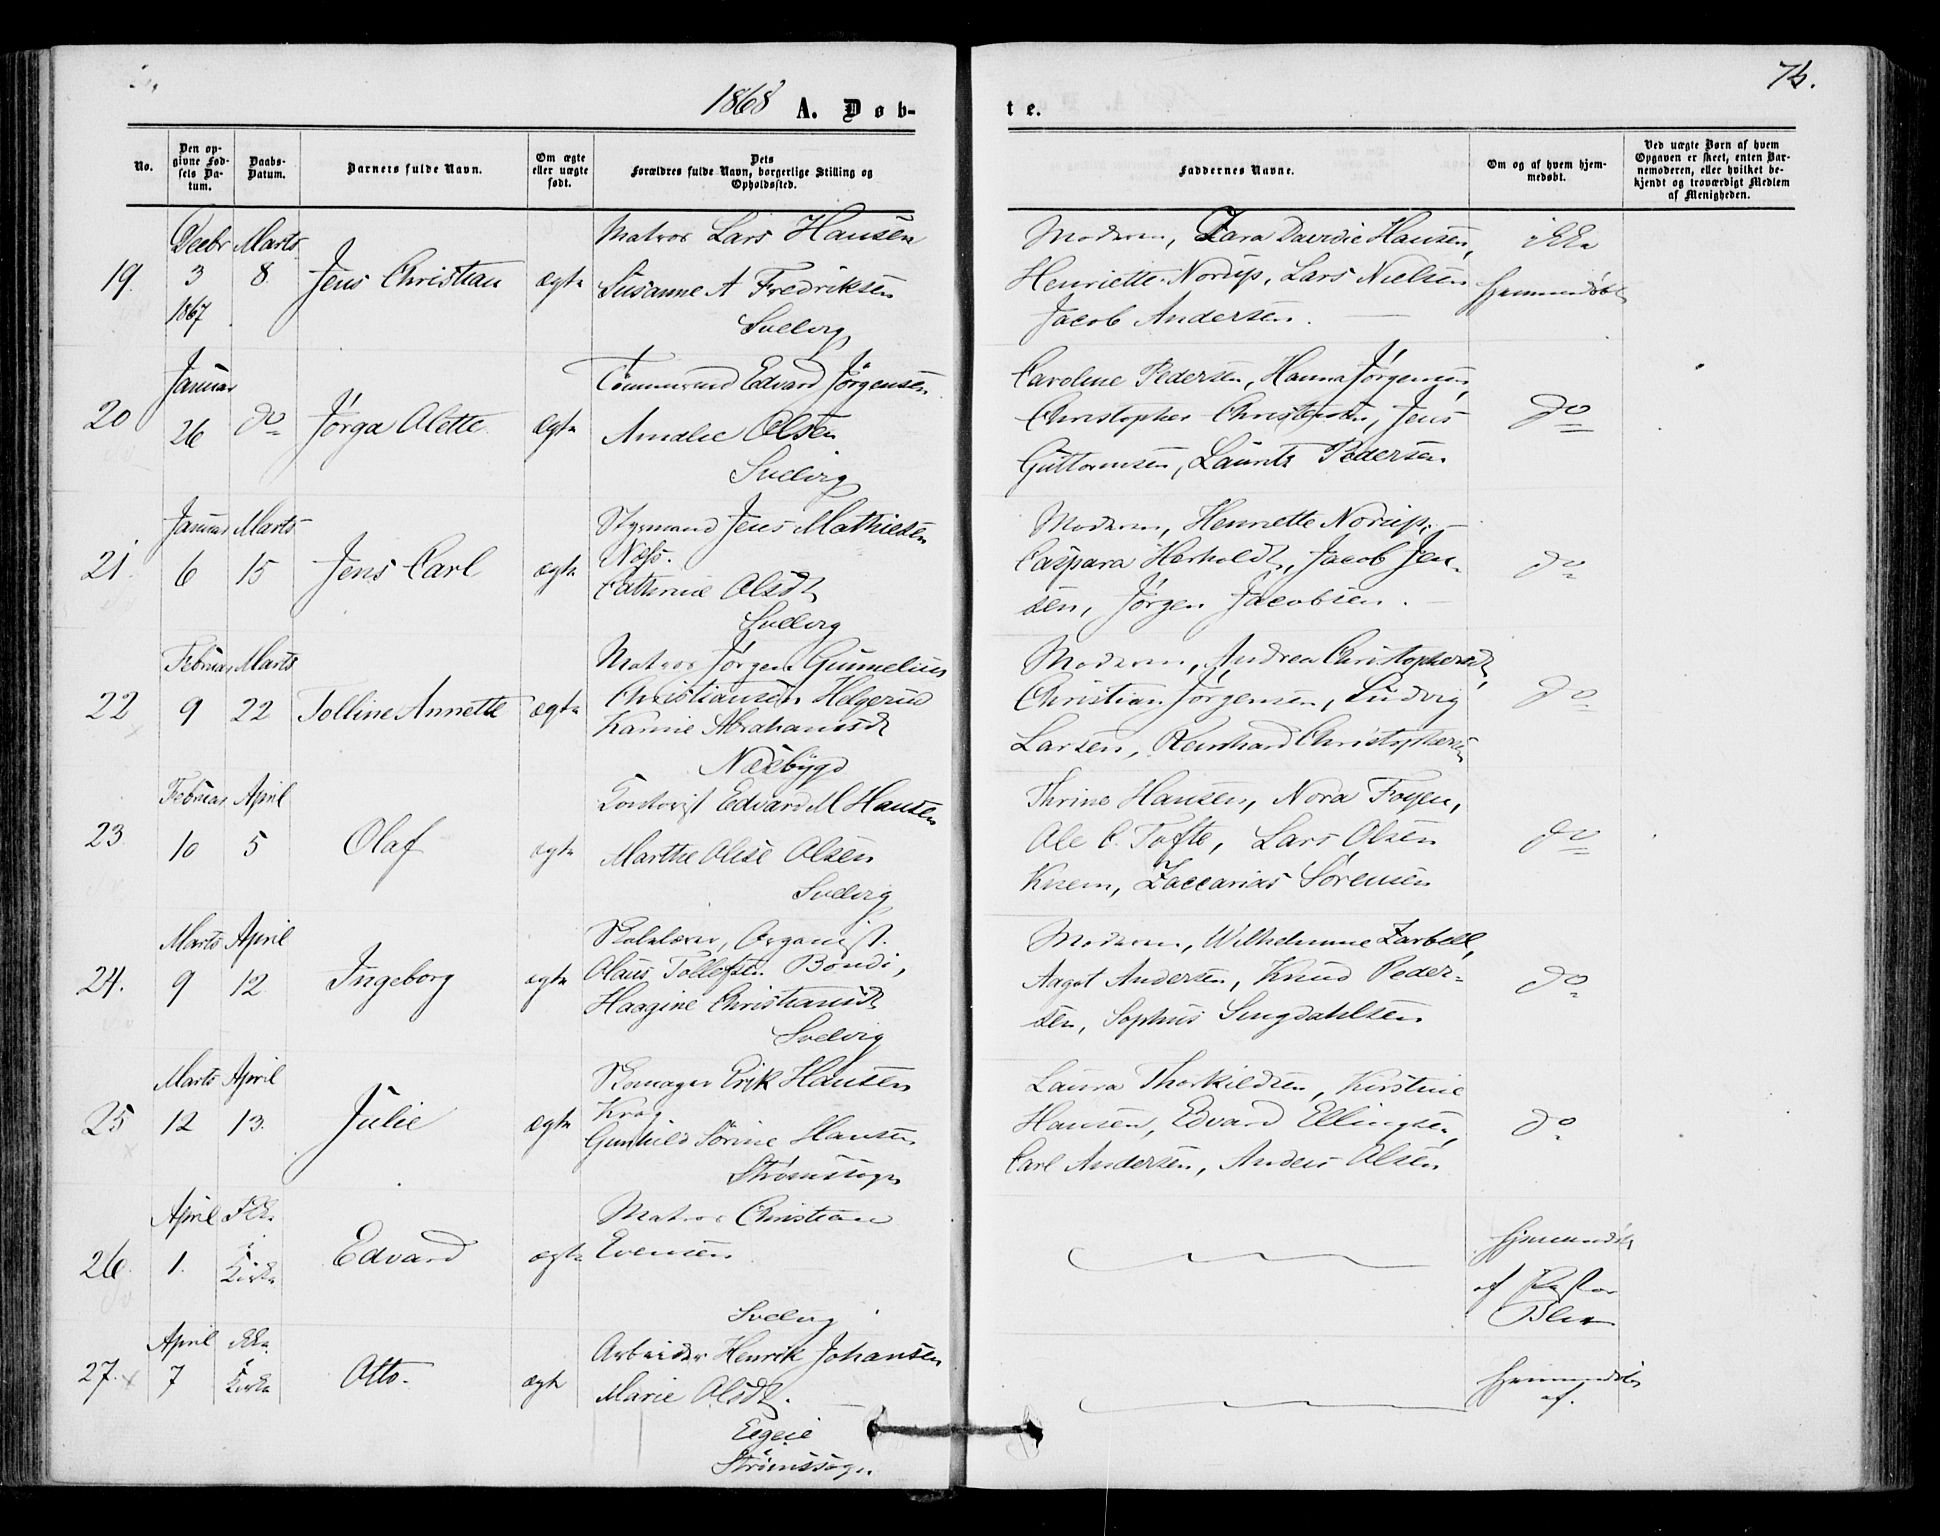 1868 A. Døb-
te.
75.
No.
Den op-
givne Fød-
sels Da-
tum.
Daabs-
Datum.
Barnets fulde Navn.
Om ægte
eller uægte
født.
Dets
Forældres fulde Navn, borgerlige Stilling og
Opholdssted.
Faddernes Navne.
Om og af hvem hjem-
medøbt.
Ved uægte Børn af hvem
Opgaven er skeet, enten Bar-
nemoderen, eller hvilket be-
kjendt og troværdigt Medlem
af Menigheden.
19. Decbr 3 1867 Marts 8. Jens Christian ægte
Matros Lars Hansen
Susanne A Fredriksen
Svelvig
Moderen, Lara Davidie Hansen,
Henriette Norup, Lars Nielsen
Jacob Andersen.
ikke
hjemmedøbt
20 Januar 26 do Jørga Olette ægte
Tømmermd Edvard Jørgensen
Amalie Olsen
Svelvig
Caroline Pedersen, Hanna Jørgensen,
Christopher Christensen, Jens
Guttormsen, Laurits Pedersen
do
21. Januar 6 Marts 15 Jens Carl ægte
Styrmand Jens Mathiesen
Næss.
Cathrine Olsdt
Svelvig
Moderen, Henriette Norup,
Caspara Herholdt, Jacob Jen-
sen, Jørgen Jacobsen.
do
22 Februar 9 Marts 22 Tolline Annette ægte
Matros Jørgen Gunnelius
Christiansen Helgerud
Karine Abrahamsdt
Nesbygd
Moderen, Andrea Christophersdt,
Christian Jørgensen, Ludvig
Larsen, Reinhard Christophersen
do
23 Februar 10 April 5 Olaf ægte
Edvard M Hansen
Marthe Olise Olsen
Svelvig
Thrine Hansen, Nora Foyen,
Ole C. Tofte, Lars Olsen
Knem, Zaccarias Sørensen
do
24. Marts 9 April 12 Ingeborg ægte
Skolelærer, Organist.
Olaus Tollefsen Bondi,
Haagine Christiansdt
Svelvig
Moderen, Wilhelmine Zarbell,
Aagot Andersen, Knud Peder-
sen, Sophus Lingdahlsen
do
25 Marts 12 April 13. Julie ægte
Skomager Erik Hansen
Krog
Gunhild Sørine Hansen
Strømssogn
Laura Thorkildsen, Kirstine
Hansen, Edvard Ellingsen,
Carl Andersen, Anders Olsen
do
26. April 1. Ikke i Kirke Edvard ægte
Matros Christian
Evensen
Svelvig
hjemmedøbt
af Pastor
Blix
27. April 7 Ikke i Kirke Otto. ægte
Arbeider Henrik Johansen
Marie Olsdt.
Egeie
i
Strømssogn
hjemmedøbt
af.